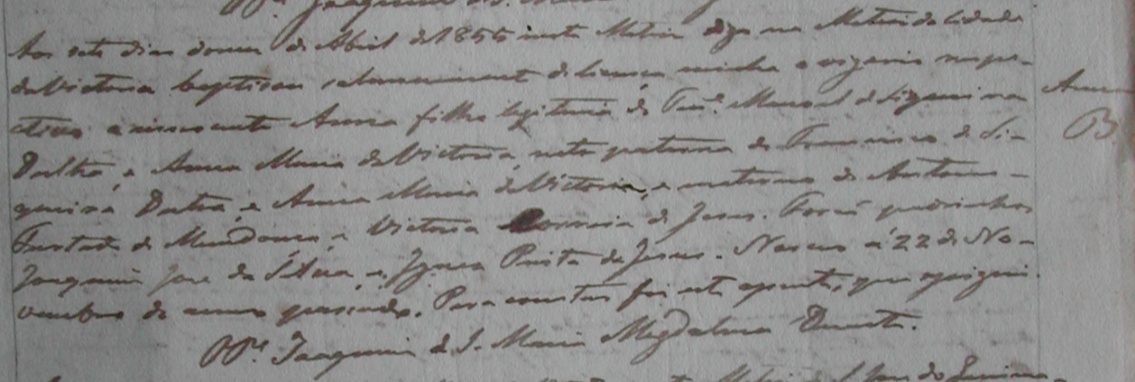 Pe. Joaquim de S. Maria
Aos sete dias do mez de Abril de 1855 nesta Matriz digo na Matriz da Cidade
da Victoria baptisou solemnemente de licença minha o vigario respe-
ctivo a innocente Anna filha legitima de Franc.º Manoel de Siqueira
Dultra, e Anna Maria da Victoria, neta paterna de Francisco de Si-
queira Dutra, e Anna Maria da Victoria, e materna de Antonio
Furtado de Mendonça, e Victoria Correia de Jesus. Forão padrinhos
Joaquim Jose de S. Anna, e Ignes Pinta de Jesus. Nasceu a 22 de No-
vembro do anno passado. Para constar fiz este assento, que assignei.
Pe. Joaquim de S. Maria Magdalena Duarte.
Anna
B.